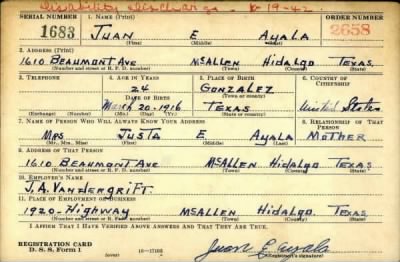 Disability discharge - 8-19-42.
SERIAL NUMBER 1. NAME (Print) ORDER NUMBER
1683 JUAN E AYALA 2658
(First) (Middle) (Last)
2. ADDRESS (Print)
1610 BEAUMONT AVE MCALLEN HIDALGO TEXAS
(Number and street or R. F. D. number) (Town) (County) (State)
3. TELEPHONE 4. AGE IN YEARS 5. PLACE OF BIRTH 6. COUNTRY OF CITIZENSHIP
24 GONZALEZ
DATE OF BIRTH (Town or county)
March 20 - 1916 TEXAS United States
(Exchange) (Number) (Mo.) (Day) (Yr.) (State or country)
7. NAME OF PERSON WHO WILL ALWAYS KNOW YOUR ADDRESS 8. RELATIONSHIP OF THAT PERSON
MRS JUSTA E AYALA MOTHER
(Mr., Mrs., Miss) (First) (Middle) (Last)
9. ADDRESS OF THAT PERSON
1610 BEAUMONT AVE MCALLEN HIDALGO TEXAS
(Number and street or R. F. D. number) (Town) (County) (State)
10. EMPLOYER'S NAME
J.A. VANDERGRIFT.
11. PLACE OF EMPLOYMENT OR BUSINESS
1920- HIGHWAY MCALLEN HIDALGO TEXAS
(Number and street or R. F. D. number) (Town) (County) (State)
I AFFIRM THAT I HAVE VERIFIED ABOVE ANSWERS AND THAT THEY ARE TRUE.
REGISTRATION CARD
D. S. S. Form 1 (over) Juan E Ayala
(Registrant's signature)